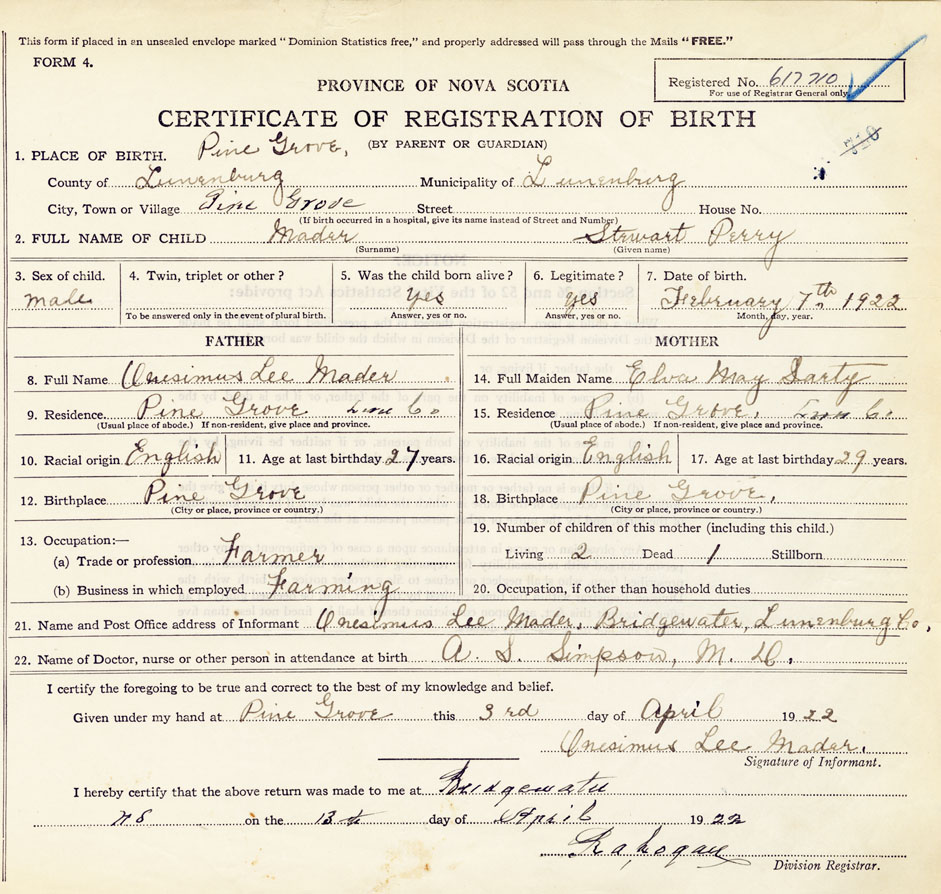 This form if placed in an unsealed envelope marked "Dominion Statistics free," and properly addressed will pass through the Mails "FREE."
FORM 4.
PROVINCE OF NOVA SCOTIA
Registered No. 617710
For use of Registrar General only.
CERTIFICATE OF REGISTRATION OF BIRTH
710
(BY PARENT OR GUARDIAN)
1. PLACE OF BIRTH. Pine Grove,
County of Lunenburg Municipality of Lunenburg
City, Town or Village Pine Grove Street House No.
(If birth occurred in a hospital, give its name instead of Street and Number)
2. FULL NAME OF CHILD Mader Stewart Perry
(Surname) (Given name)
3. Sex of child. 4. Twin, triplet or other? 5. Was the child born alive? 6. Legitimate? 7. Date of birth.
male Yes yes February 7th 1922
To be answered only in the event of plural birth. Answer, yes or no. Answer, yes or no. Month, day, year.
FATHER MOTHER
8. Full Name Onesimus Lee Mader 14. Full Maiden Name Elva May Sarty
9. Residence. Pine Grove Lun Co. 15. Residence Pine Grove, Lun Co.
(Usual place of abode.) If non-resident, give place and province. (Usual place of abode.) If non-resident, give place and province.
10. Racial origin English 11. Age at last birthday 27 years. 16. Racial origin English 17. Age at last birthday 29 years.
12. Birthplace Pine Grove 18. Birthplace Pine Grove,
(City or place, province or country.) (City or place, province or country.)
13. Occupation:— 19. Number of children of this mother (including this child.)
(a) Trade or profession Farmer Living 2 Dead 1 Stillborn
(b) Business in which employed Farming 20. Occupation, if other than household duties
21. Name and Post Office address of Informant Onesimus Lee Mader, Bridgewater, Lunenburg Co,
22. Name of Doctor, nurse or other person in attendance at birth A. S. Simpson, M. D.
I certify the foregoing to be true and correct to the best of my knowledge and belief.
Given under my hand at Pine Grove this 3rd day of April 1922
Onesimus Lee Mader.
Signature of Informant.
I hereby certify that the above return was made to me at Bridgewater
NS on the 13th day of April 1922
Division Registrar.